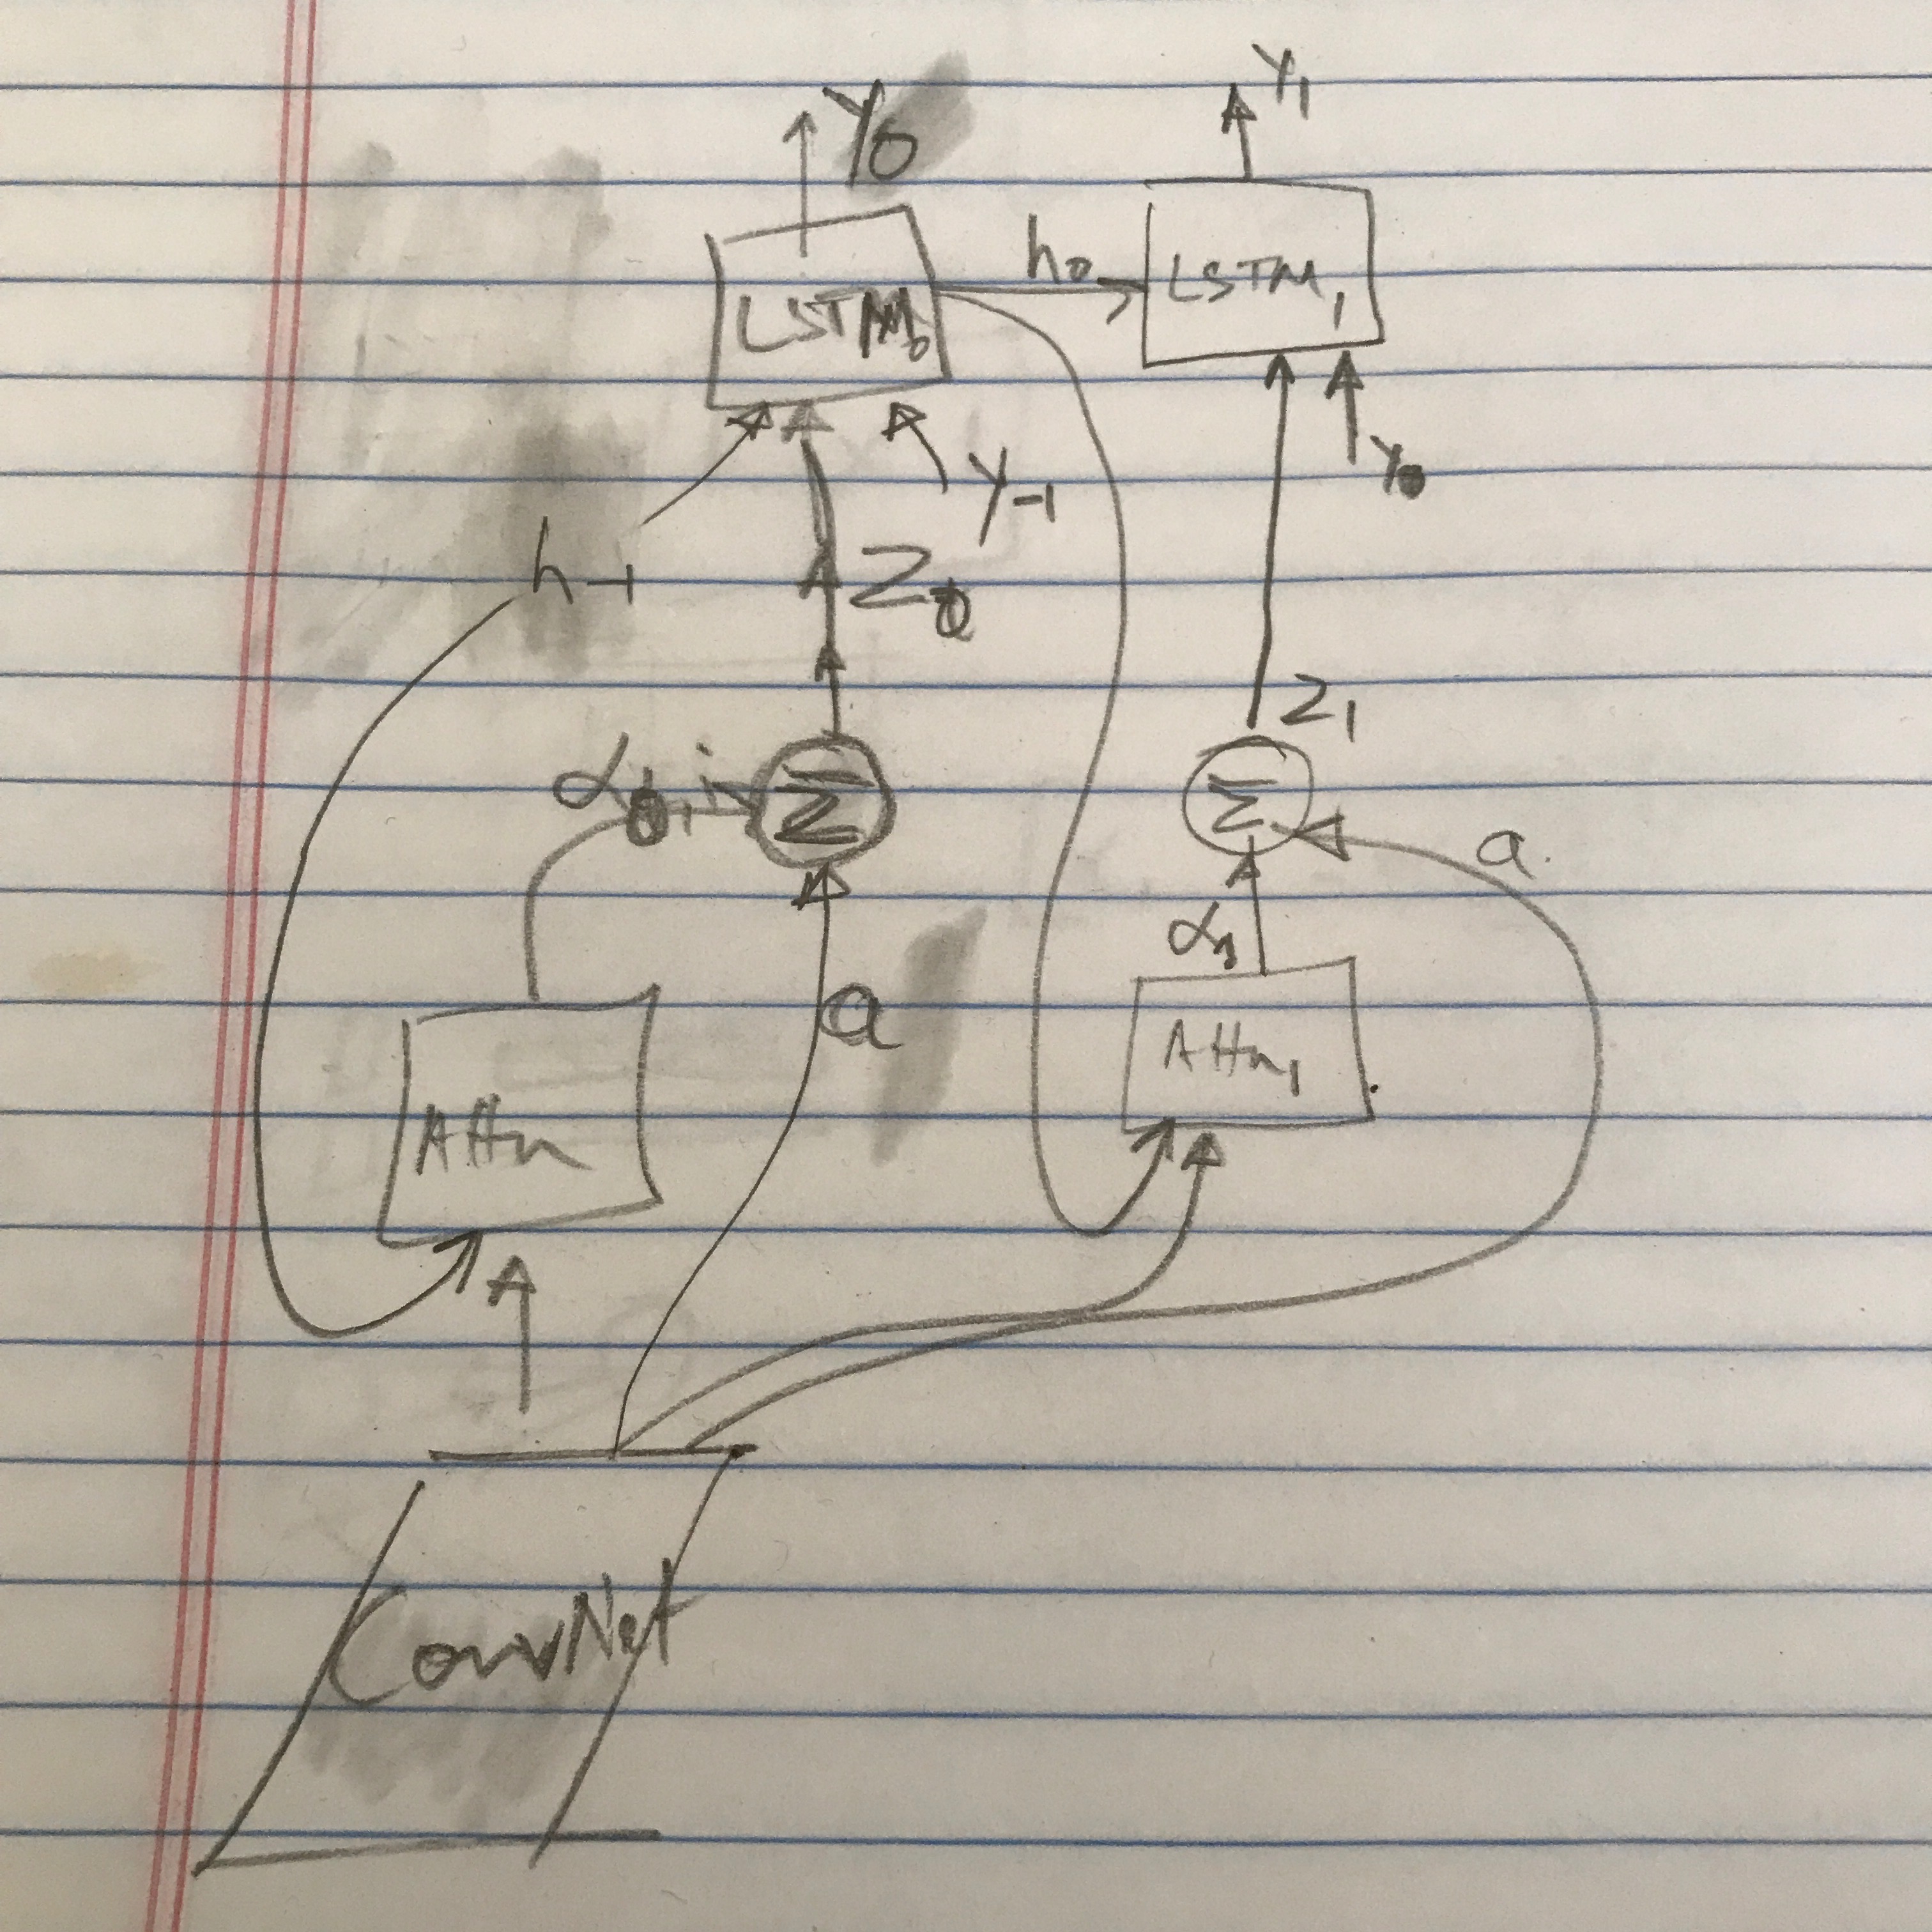 y0
y1
h0
LSTM0
LSTM1
y-1
y0
h-1
z0
z1
α0,i
Σ
Σ
a
α1
a
Attn
Attn1
ConvNet